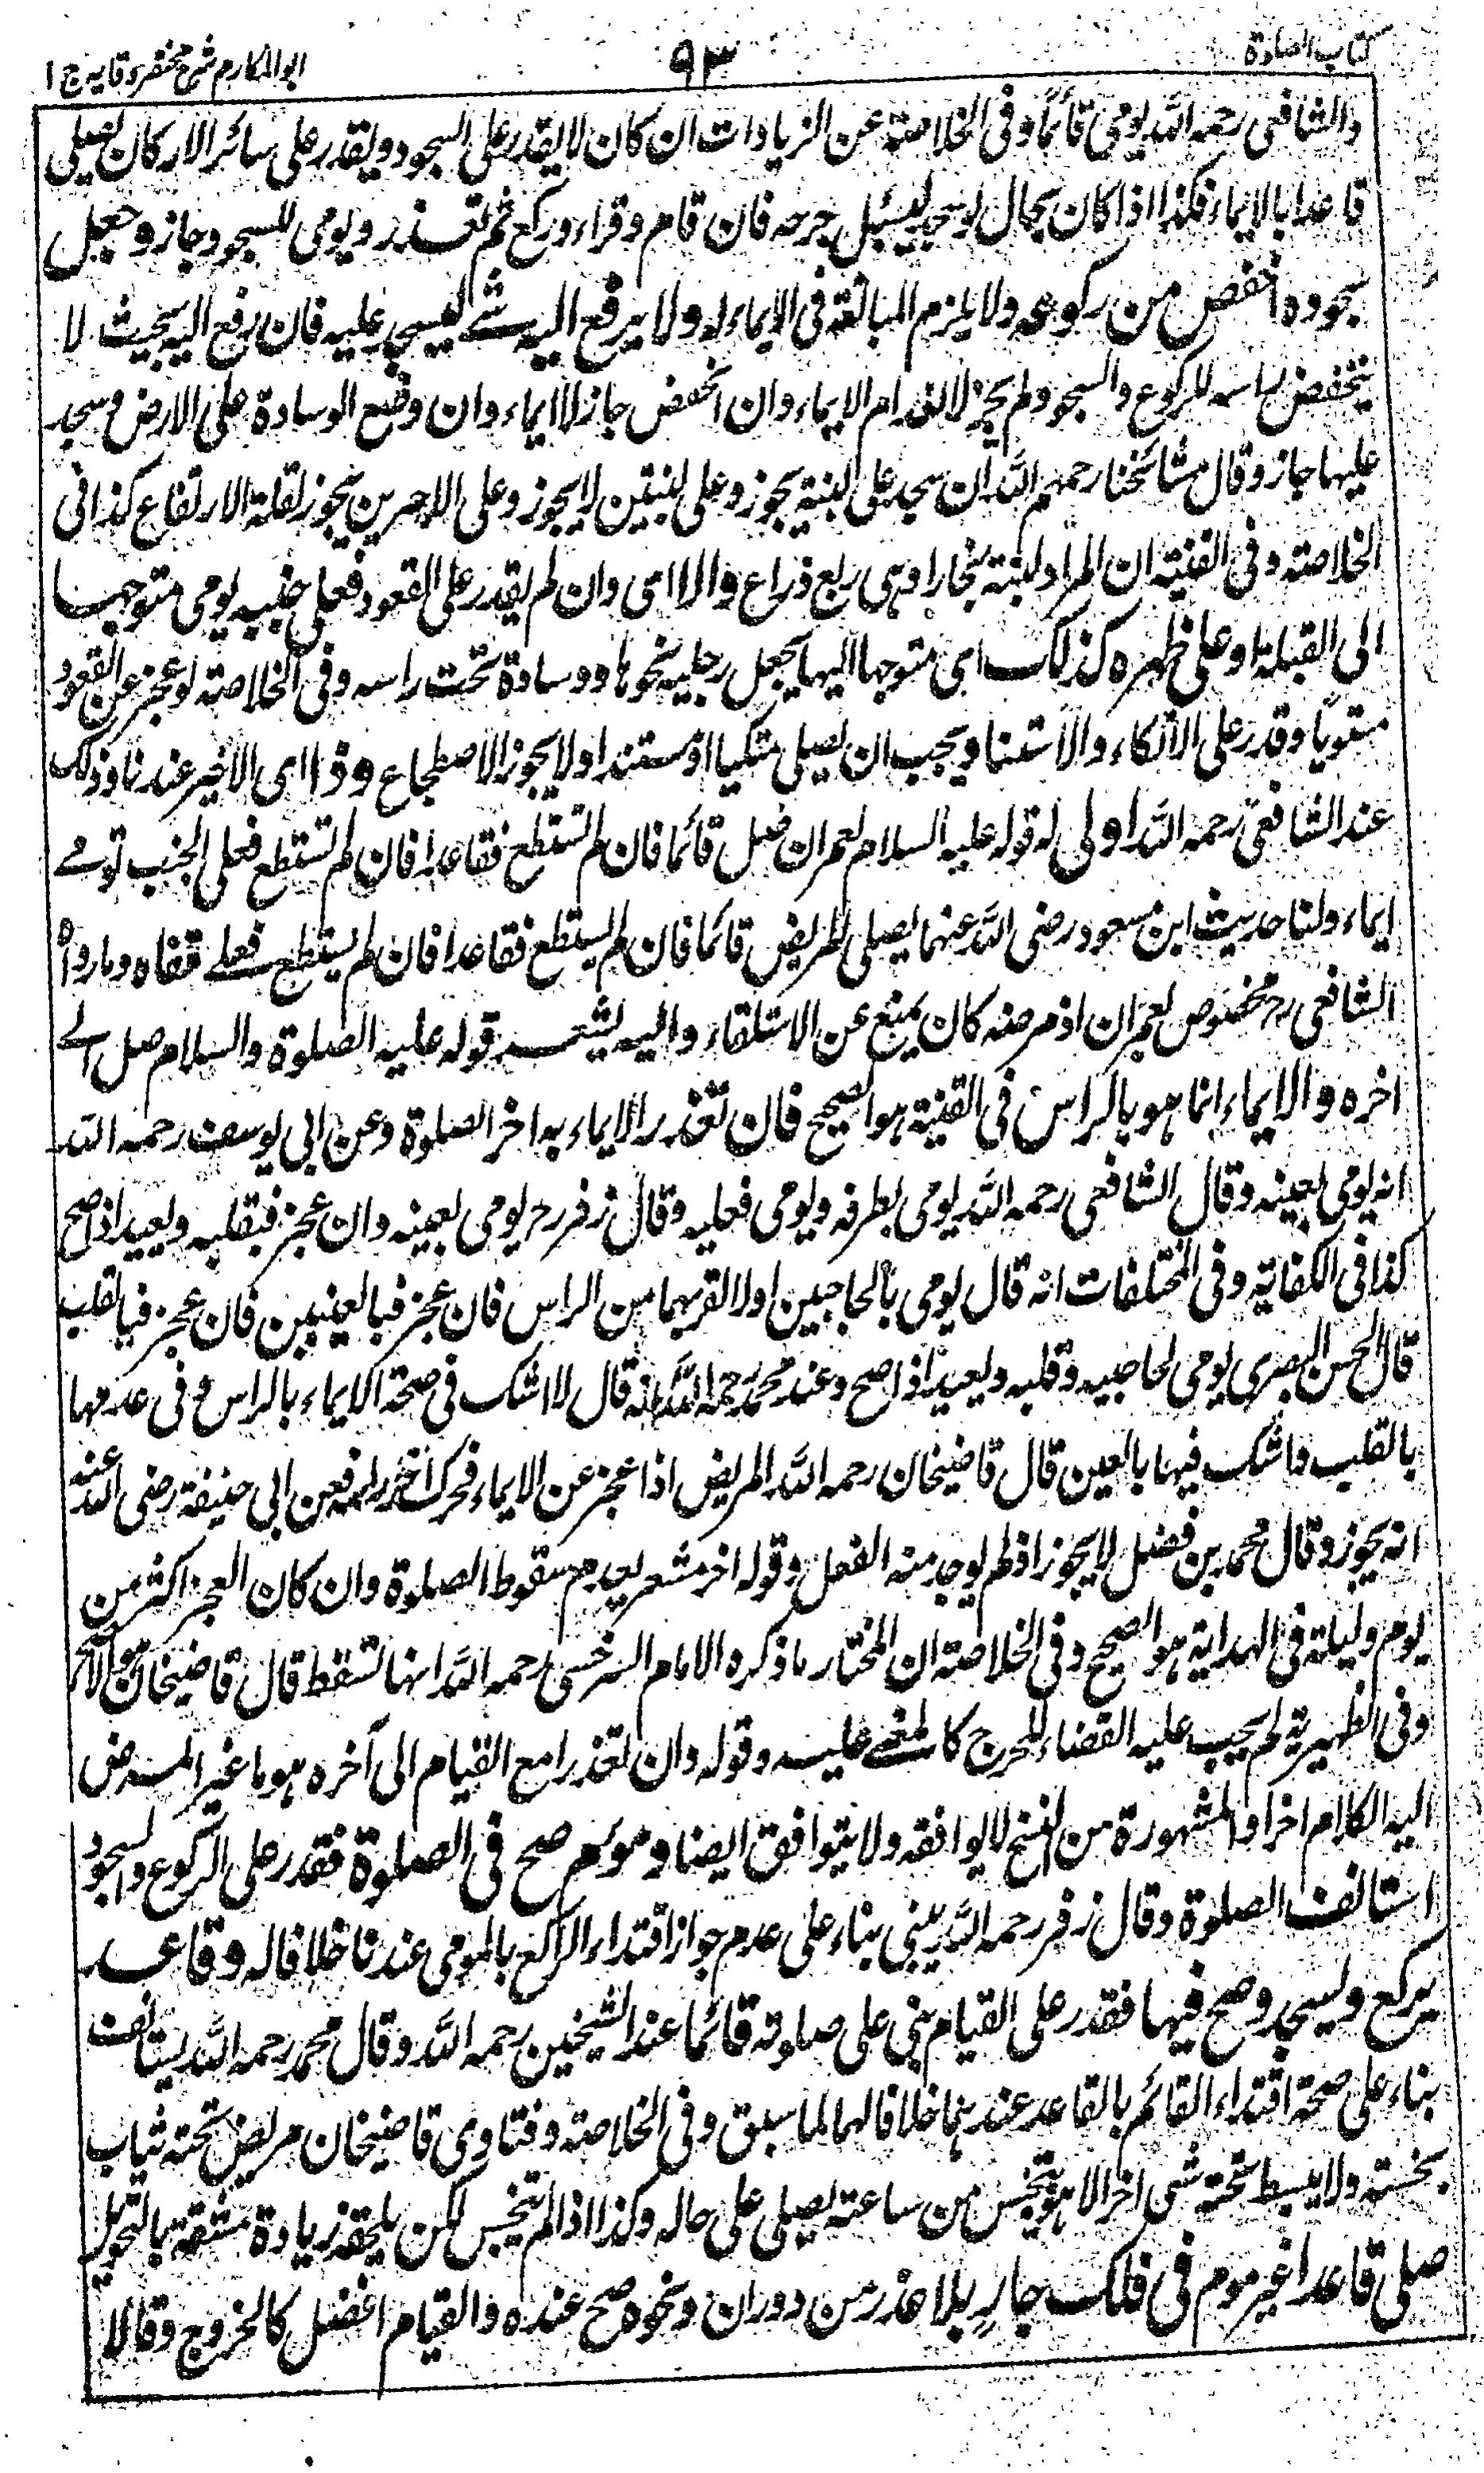 كتاب الصلوة
٩٣
ابو المكارم شرح مختصر وقايه ج ١
والشافعى رحمه الله يومى قائماً وفى الخلاصة عن الزيادات ان كان لا يقدر على السجود ويقدر على سائر الاركان يصلى
قاعدا بالايماء فكذا اذا كان بحال لو سجد ليسيل جرحه فان قام وقراء وركع ثم تعذر ويومى للسجود جاز وجعل
سجوده اخفض من ركوعه ولا يلزم المبالغة فى الايماء له ولا يرفع اليه شئ ليسجد عليه فان رفع اليه بحيث لا
ينخفض راسه للركوع والسجود لم يجز لانعدام الايماء وان انخفض جاز للايماء وان وضع الوسادة على الارض وسجد
عليها جاز وقال مشائخنا رحمهم الله ان سجد على لبنة يجوز وعلى لبنتين لا يجوز وعلى الاجرين يجوز لقلة الارتفاع كذا فى
الخلاصة وفى القنية ان المراد لبنة بخارا وهى ربع ذراع والا اى وان لم يقدر على القعود فعلى جنبيه يومى متوجها
الى القبلة او على ظهره كذلك اى متوجها اليها يجعل رجليه نحوها ووسادة تحت راسه وفى الخلاصة لو عجز عن القعود
مستويا وقدر على الاتكاء والاستنا ويجب ان يصلى متكيا او مستندا ولا يجوز الاضطجاع وذا اى الاخير عندنا وذلك
عند الشافعى رحمه الله اولى له قوله عليه السلام لعمران صل قائما فان لم تستطع فقاعدا فان لم تستطع فعلى الجنب تومى
ايماء ولنا حديث ابن مسعود رضى الله عنهما يصلى المريض قائما فان لم يستطع فقاعدا فان لم يستطع فعلى قفاه وما رواه
الشافعى رح مخصوص لعمران اذ مرضه كان يمنع عن الاستلقاء واليه يشعر قوله عليه الصلوة والسلام صل الى
اخره والايماء انما هو بالراس فى القنية هو الصحيح فان تعذر الايماء به اخر الصلوة وعن ابى يوسف رحمه الله
انه يومى بعينه وقال الشافعى رحمه الله يومى بطرفه ويومى فعليه وقال زفر رح يومى بعينه وان عجز فبقلبه ويعيد اذا صح
كذا فى الكفاية وفى المختلفات انه قال يومى بالحاجبين اولا لقربهما من الراس فان عجز فبالعينين فان عجز فبالقلب
قال الحسن البصرى يومى لحاجبيه وقلبه ويعيد اذا صح وعند محمد رحمه الله انه قال لا اشك فى صحة الايماء بالراس وفى عدمها
بالقلب واشك فيها بالعين قال قاضيخان رحمه الله المريض اذا عجز عن الايماء فحرك راسه فعن ابى حنيفة رضى الله عنه
انه يجوز وقال محمد بن فضل لا يجوز اذ لم يوجد منه الفعل وقوله اخر مشعر بعدم سقوط الصلوة وان كان العجز اكثر من
يوم وليلة فى الهداية هو الصحيح وفى الخلاصة ان المختار ما ذكره الامام السرخسى رحمه الله انها تسقط قال قاضيخان هو الاصح
وفى الظهيرية لم يجب عليه القضاء للحرج كالمغمى عليه وقوله وان تعذرا مع القيام الى آخره هو ما غير المصنف
اليه الكلام اخرا والمشهورة من النسخ لا يوافقه ولا يتوافق ايضا وموم صح فى الصلوة فقدر على الركوع والسجود
استانف الصلوة وقال زفر رحمه الله يبنى بناء على عدم جواز اقتداء الراكع بالمومى عندنا خلافا له وقاعد
يركع ويسجد وصح فيها فقدر على القيام بنى على صلوته قائما عند الشيخين رحمه الله وقال محمد رحمه الله يستانف
بناء على صحة اقتداء القائم بالقاعد عندهما خلافا لهما لما سبق وفى الخلاصة وفتاوى قاضيخان مريض تحته ثياب
نجسة ولا يبسط تحته شى اخر الا هو يتنجس من ساعته يصلى على حاله وكذا اذا لم يتنجس لكن يلحقه زيادة مشقة بالتحويل
صلى قاعدا غير موم فى فلك جار بلا عذر من دوران ونحوه صح عنده والقيام افضل كالخروج وقالا